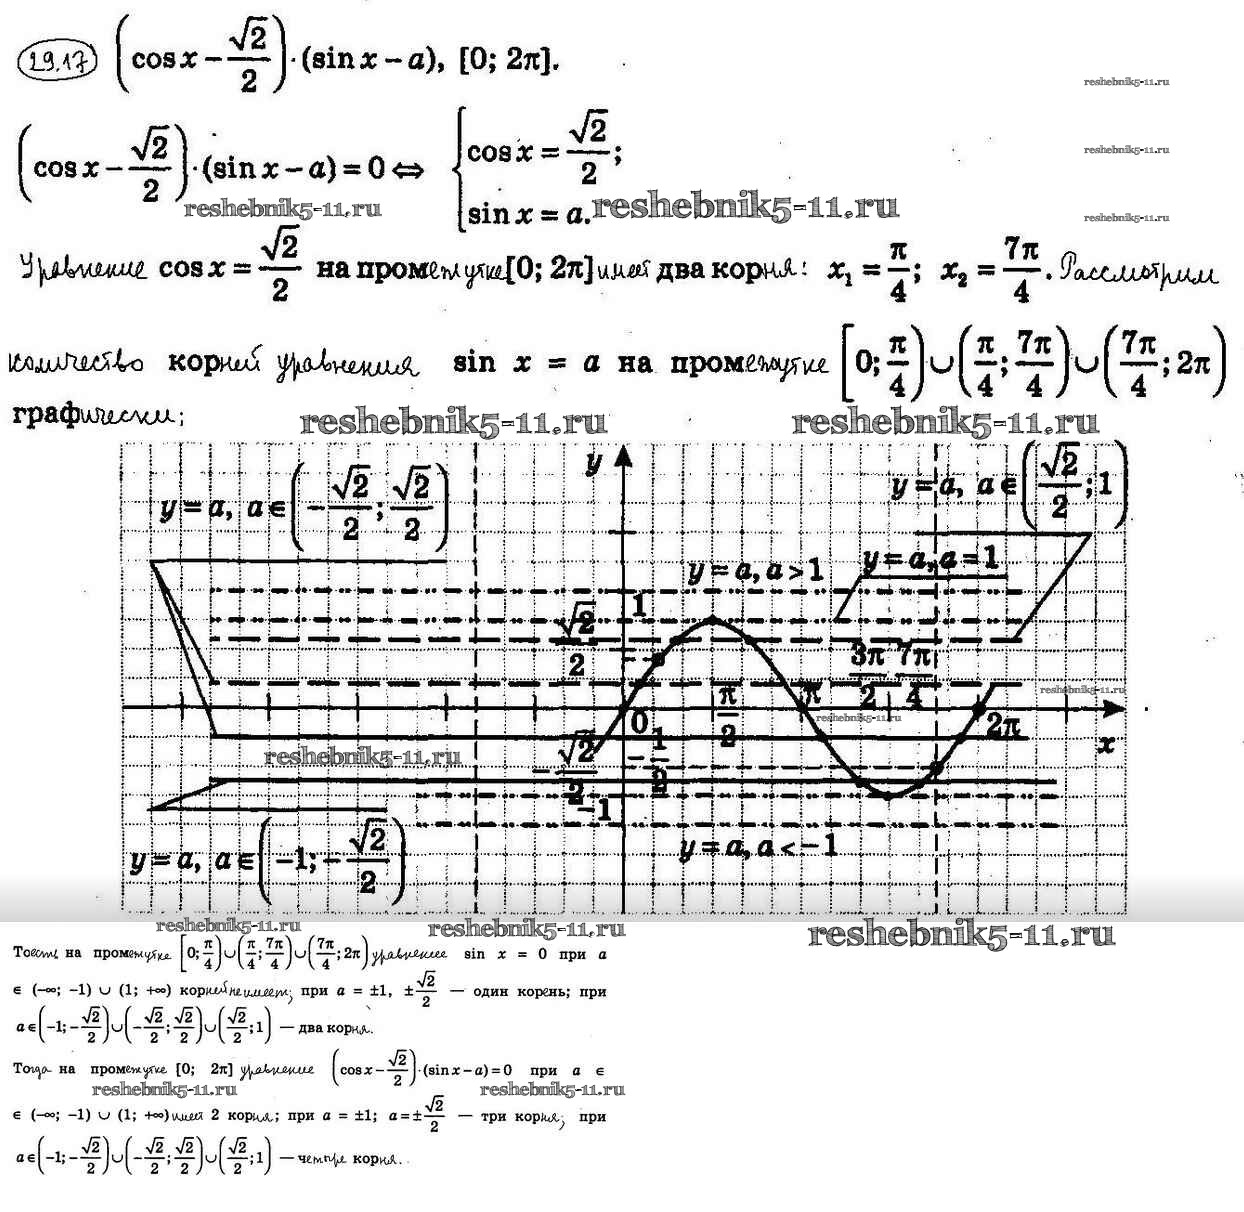 19.17 (cos x − √2/2)·(sin x − a), [0; 2π].
reshebnik5-11.ru
(cos x − √2/2)·(sin x − a) = 0 ⇔ { cos x = √2/2; sin x = a.
reshebnik5-11.ru
reshebnik5-11.ru reshebnik5-11.ru
reshebnik5-11.ru
Уравнение cos x = √2/2 на промежутке [0; 2π] имеет два корня: x₁ = π/4; x₂ = 7π/4. Рассмотрим
количество корней уравнения sin x = a на промежутке [0; π/4) ∪ (π/4; 7π/4) ∪ (7π/4; 2π)
графически:
reshebnik5-11.ru reshebnik5-11.ru
y = a, a ∈ (−√2/2; √2/2)
y
y = a, a ∈ (√2/2; 1)
y = a, a > 1
y = a, a = 1
1
√2/2
3π/2 7π/4
reshebnik5-11.ru
0 π/2 π 2π x
reshebnik5-11.ru
reshebnik5-11.ru
−√2/2 −1/2
−1
y = a, a < −1
y = a, a ∈ (−1; −√2/2)
reshebnik5-11.ru reshebnik5-11.ru reshebnik5-11.ru
Тоесть на промежутке [0; π/4) ∪ (π/4; 7π/4) ∪ (7π/4; 2π) уравнение sin x = 0 при a
∈ (−∞; −1) ∪ (1; +∞) корней не имеет; при a = ±1, ±√2/2 — один корень; при
a ∈ (−1; −√2/2) ∪ (−√2/2; √2/2) ∪ (√2/2; 1) — два корня.
Тогда на промежутке [0; 2π] уравнение (cos x − √2/2)·(sin x − a) = 0 при a ∈
reshebnik5-11.ru reshebnik5-11.ru
∈ (−∞; −1) ∪ (1; +∞) имеет 2 корня; при a = ±1; a = ±√2/2 — три корня; при
a ∈ (−1; −√2/2) ∪ (−√2/2; √2/2) ∪ (√2/2; 1) — четыре корня.